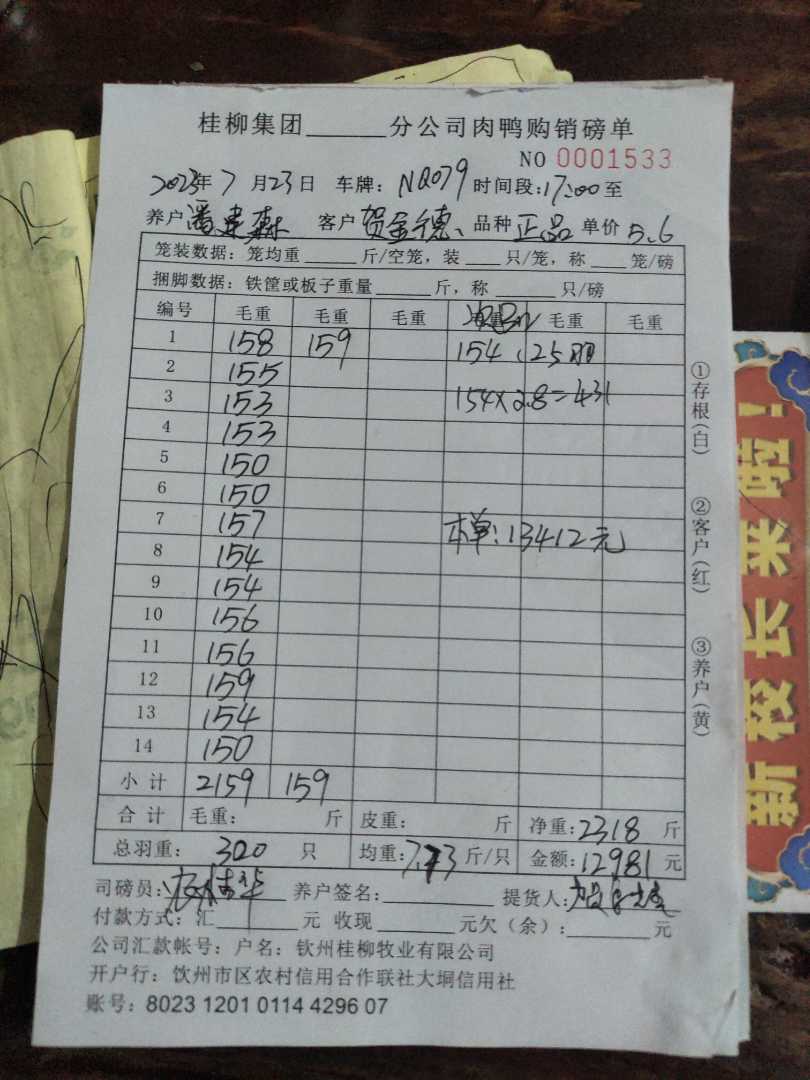 桂柳集团______分公司肉鸭购销磅单
NO 0001533
2023年7月23日 车牌：NQ079 时间段：17:00至
养户 潘建森 客户 贺金德、品种 正品 单价 5.6
笼装数据：笼均重____斤/空笼，装___只/笼，称___笼/磅
捆脚数据：铁筐或板子重量____斤，称____只/磅
编号 毛重 毛重 毛重 毛重 毛重
1 158 159 154、25只
2 155
3 153 154×2.8=431
4 153
5 150
6 150
7 157 本单：13412元
8 154
9 154
10 156
11 156
12 159
13 154
14 150
小计 2159 159
合计 毛重： 斤 皮重： 斤 净重：2318 斤
总羽重： 300 只 均重：7.73斤/只 金额：12981元
司磅员： 养户签名：______ 提货人：
付款方式：汇____元 收现____元欠（余）：____元
公司汇款帐号：户名：钦州桂柳牧业有限公司
开户行：饮州市区农村信用合作联社大垌信用社
账号：8023 1201 0114 4296 07
①存根（白）
②客户（红）
③养户（黄）
新校长来啦！